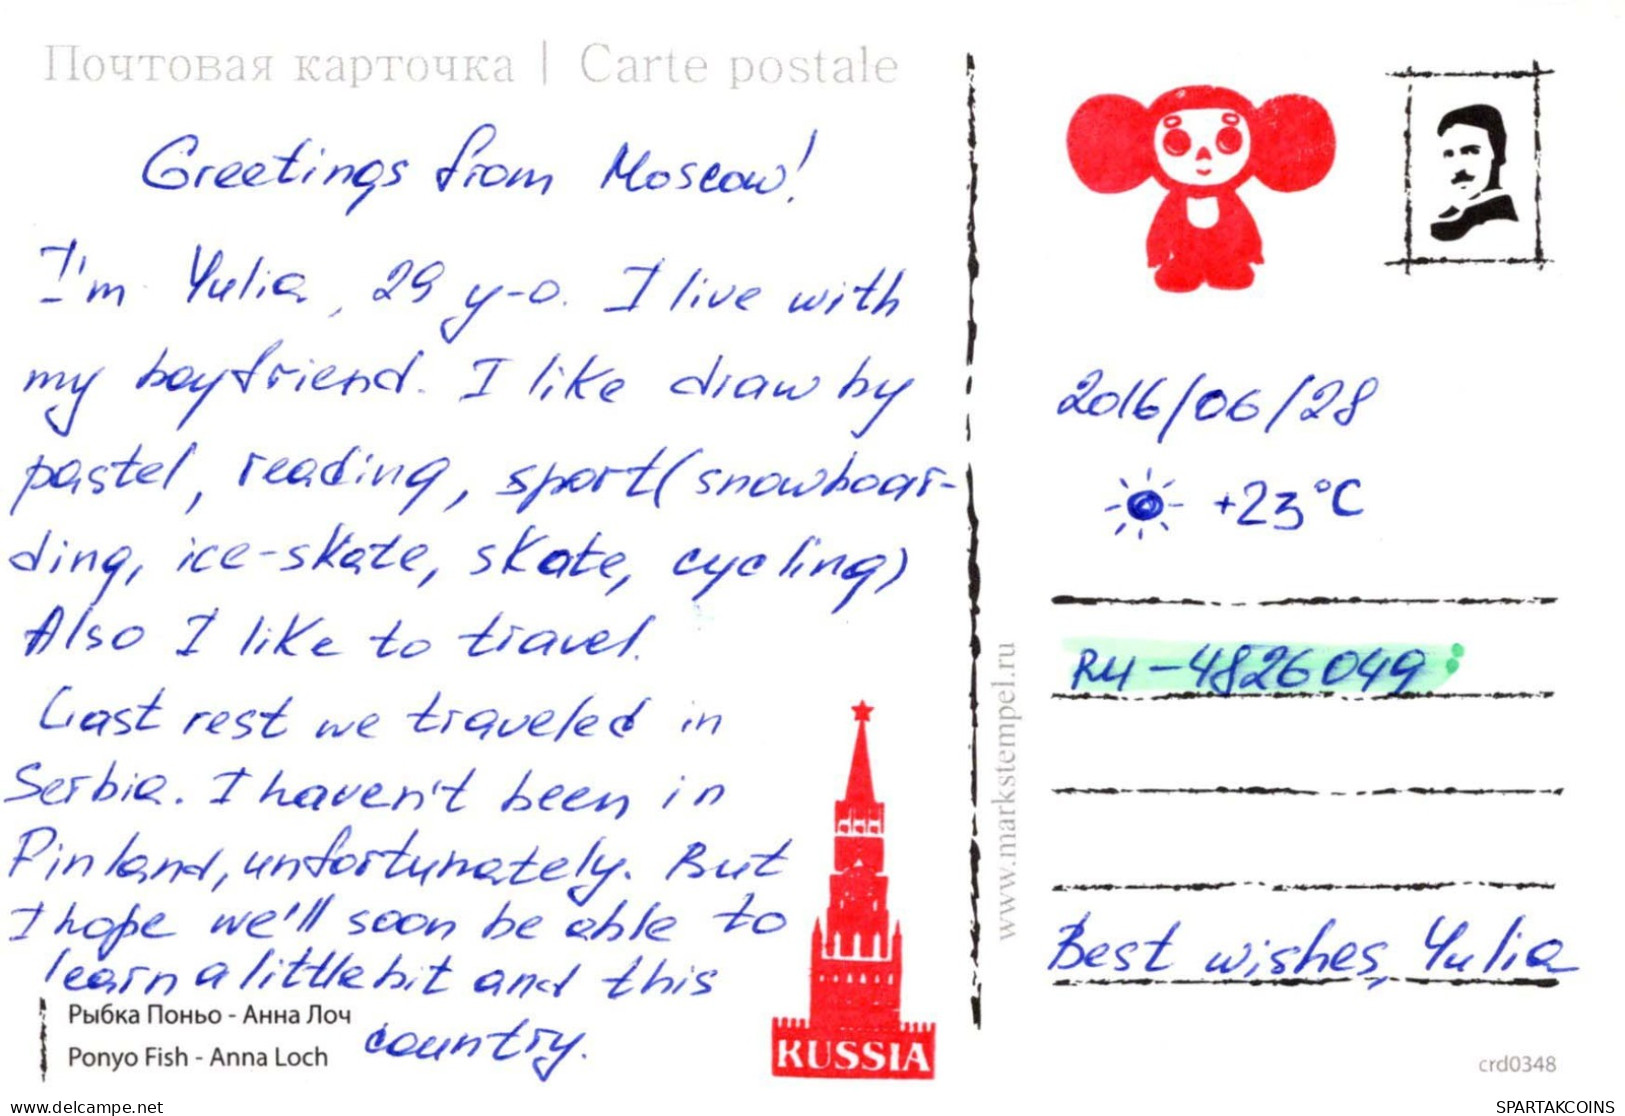 Почтовая карточка | Carte postale
Greetings from Moscow!
I'm Yulia, 29 y-o. I live with
my boyfriend. I like draw by
pastel, reading, sport (snowboar-
ding, ice-skate, skate, cycling)
Also I like to travel.
Last rest we traveled in
Serbia. I haven't been in
Finland, unfortunately. But
I hope we'll soon be able to
learn a little bit and this
country.
Рыбка Поньо - Анна Лоч
Ponyo Fish - Anna Loch
RUSSIA
www.markstempel.ru
2016/06/28
+23°C
RU-4826049
Best wishes, Yulia
crd0348
www.delcampe.net
SPARTAKCOINS